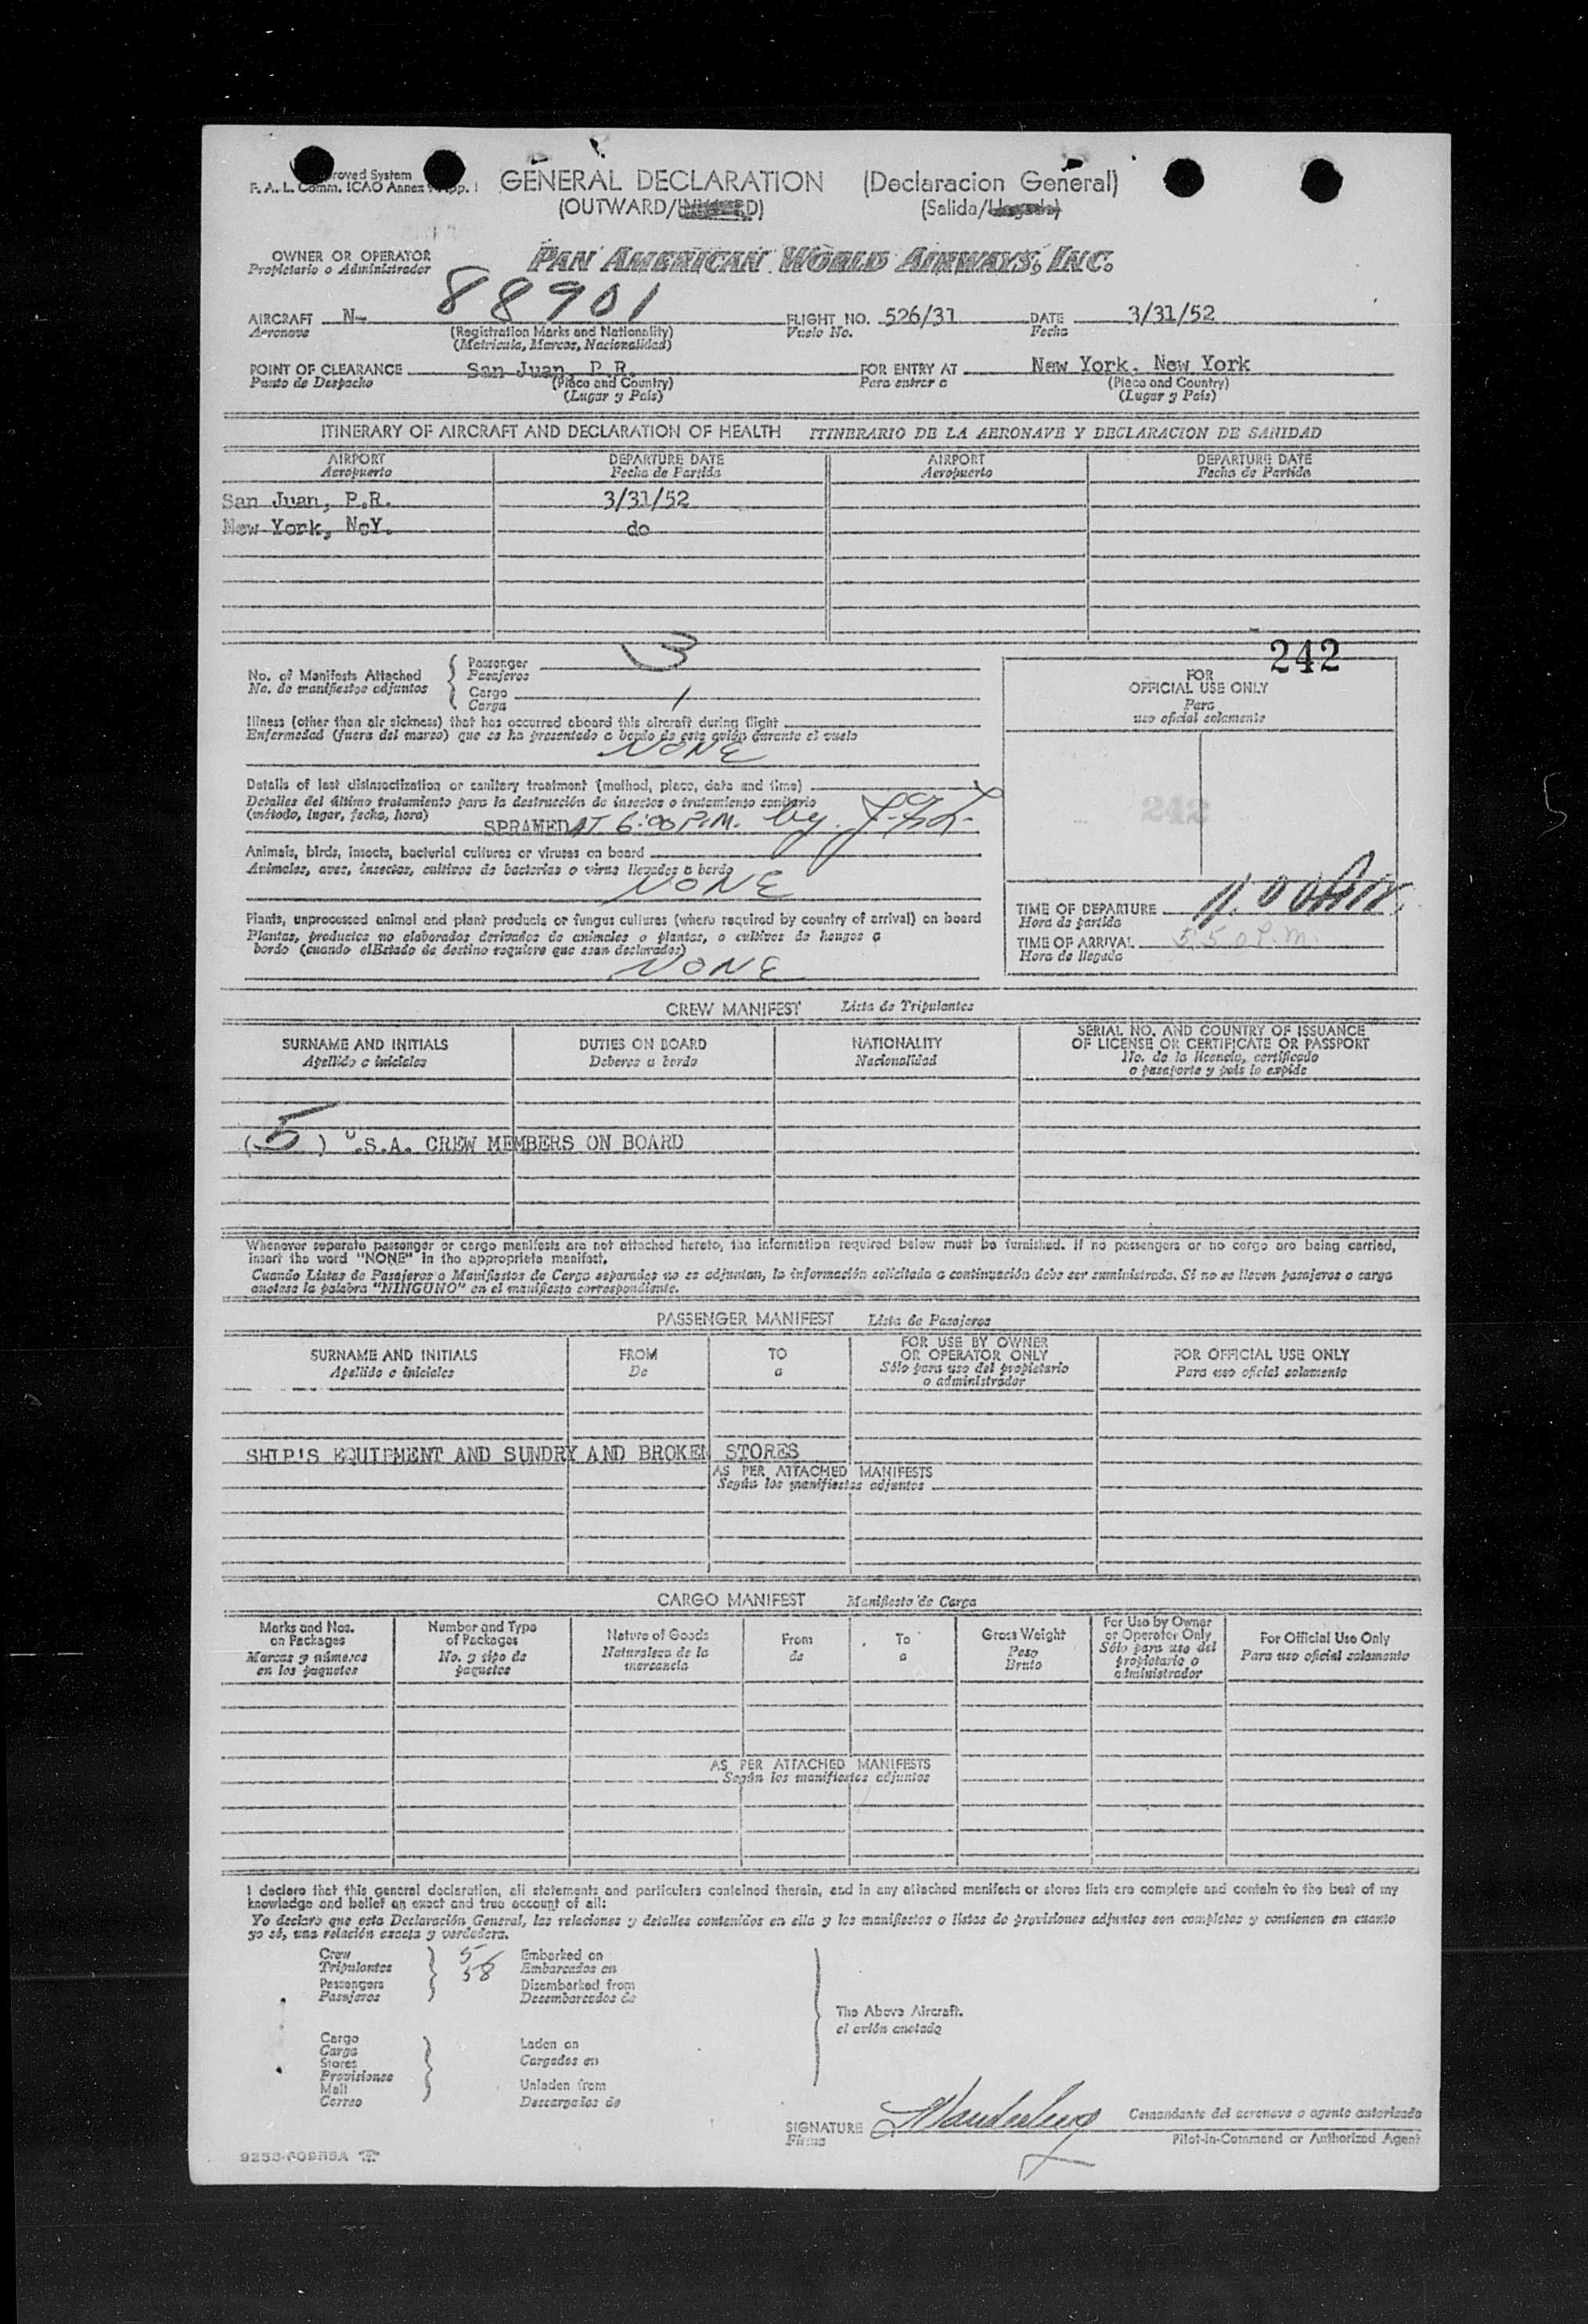 roved System
F. A. L. Comm. ICAO Annex
GENERAL DECLARATION (Declaracion General)
(OUTWARD/ D) (Salida/
OWNER OR OPERATOR PAN AMERICAN WORLD AIRWAYS, INC.
Propietario o Administrador
AIRCRAFT N- 88901 FLIGHT NO. 526/31 DATE 3/31/52
Aeronave (Registration Marks and Nationality) Vuelo No. Fecha
(Matricula, Marcas, Nacionalidad)
POINT OF CLEARANCE San Juan, P.R. FOR ENTRY AT New York, New York
Punto de Despacho (Place and Country) Para entrar a (Place and Country)
(Lugar y País) (Lugar y País)
ITINERARY OF AIRCRAFT AND DECLARATION OF HEALTH ITINERARIO DE LA AERONAVE Y DECLARACION DE SANIDAD
AIRPORT DEPARTURE DATE AIRPORT DEPARTURE DATE
Aeropuerto Fecha de Partida Aeropuerto Fecha de Partida
San Juan, P.R. 3/31/52
New York, N.Y. do
242
No. of Manifests Attached Passenger 3
No. de manifiestos adjuntos Pasajeros
Cargo 1
Carga
FOR
OFFICIAL USE ONLY
Para
uso oficial solamente
Illness (other than air sickness) that has occurred aboard this aircraft during flight
Enfermedad (fuera del mareo) que se ha presentado a bordo de este avión durante el vuelo
NONE
Details of last disinsectization or sanitary treatment (method, place, date and time)
Detalles del último tratamiento para la destrucción de insectos o tratamiento sanitario
(método, lugar, fecha, hora)
SPRAYED AT 6:00 P.M. by
242
Animals, birds, insects, bacterial cultures or viruses on board
Animales, aves, insectos, cultivos de bacterias o virus llevados a bordo
NONE
Plants, unprocessed animal and plant products or fungus cultures (where required by country of arrival) on board
Plantas, productos no elaborados derivados de animales o plantas, o cultivos de hongos a
bordo (cuando elEstado de destino requiere que sean declarados)
NONE
TIME OF DEPARTURE 11.00
Hora de partida
TIME OF ARRIVAL 5:50 P.M.
Hora de llegada
CREW MANIFEST Lista de Tripulantes
SURNAME AND INITIALS DUTIES ON BOARD NATIONALITY SERIAL NO. AND COUNTRY OF ISSUANCE
OF LICENSE OR CERTIFICATE OR PASSPORT
Apellido e iniciales Deberes a bordo Nacionalidad No. de la licencia, certificado
o pasaporte y país lo expide
(5) U.S.A. CREW MEMBERS ON BOARD
Whenever separate passenger or cargo manifests are not attached hereto, the information required below must be furnished. If no passengers or no cargo are being carried,
insert the word "NONE" in the appropriate manifest.
Cuando Listas de Pasajeros o Manifiestos de Carga separados no se adjuntan, la información solicitada a continuación debe ser suministrada. Si no se llevan pasajeros o carga
anotese la palabra "NINGUNO" en el manifiesto correspondiente.
PASSENGER MANIFEST Lista de Pasajeros
SURNAME AND INITIALS FROM TO FOR USE BY OWNER
OR OPERATOR ONLY FOR OFFICIAL USE ONLY
Apellido e iniciales De a Sólo para uso del propietario
o administrador Para uso oficial solamente
SHIP'S EQUIPMENT AND SUNDRY AND BROKEN STORES
AS PER ATTACHED MANIFESTS
Según los manifiestos adjuntos
CARGO MANIFEST Manifiesto de Carga
Marks and Nos.
on Packages
Marcas y números
en los paquetes
Number and Type
of Packages
No. y tipo de
paquetes
Nature of Goods
Naturaleza de la
mercancía
From
de
To
a
Gross Weight
Peso
Bruto
For Use by Owner
or Operator Only
Sólo para uso del
propietario o
administrador
For Official Use Only
Para uso oficial solamente
AS PER ATTACHED MANIFESTS
Según los manifiestos adjuntos
I declare that this general declaration, all statements and particulars contained therein, and in any attached manifests or stores lists are complete and contain to the best of my
knowledge and belief an exact and true account of all:
Yo declaro que esta Declaración General, las relaciones y detalles contenidos en ella y los manifiestos o listas de provisiones adjuntos son completos y contienen en cuanto
yo sé, una relación exacta y verdadera.
Crew 5 Embarked on
Tripulantes 58 Embarcados en
Passengers Disembarked from
Pasajeros Desembarcados de
The Above Aircraft.
el avión anotado
Cargo Laden on
Carga
Stores Cargados en
Provisiones
Mail Unladen from
Correo Descargados de
SIGNATURE Comandante del aeronave o agente autorizado
Firma Pilot-in-Command or Authorized Agent